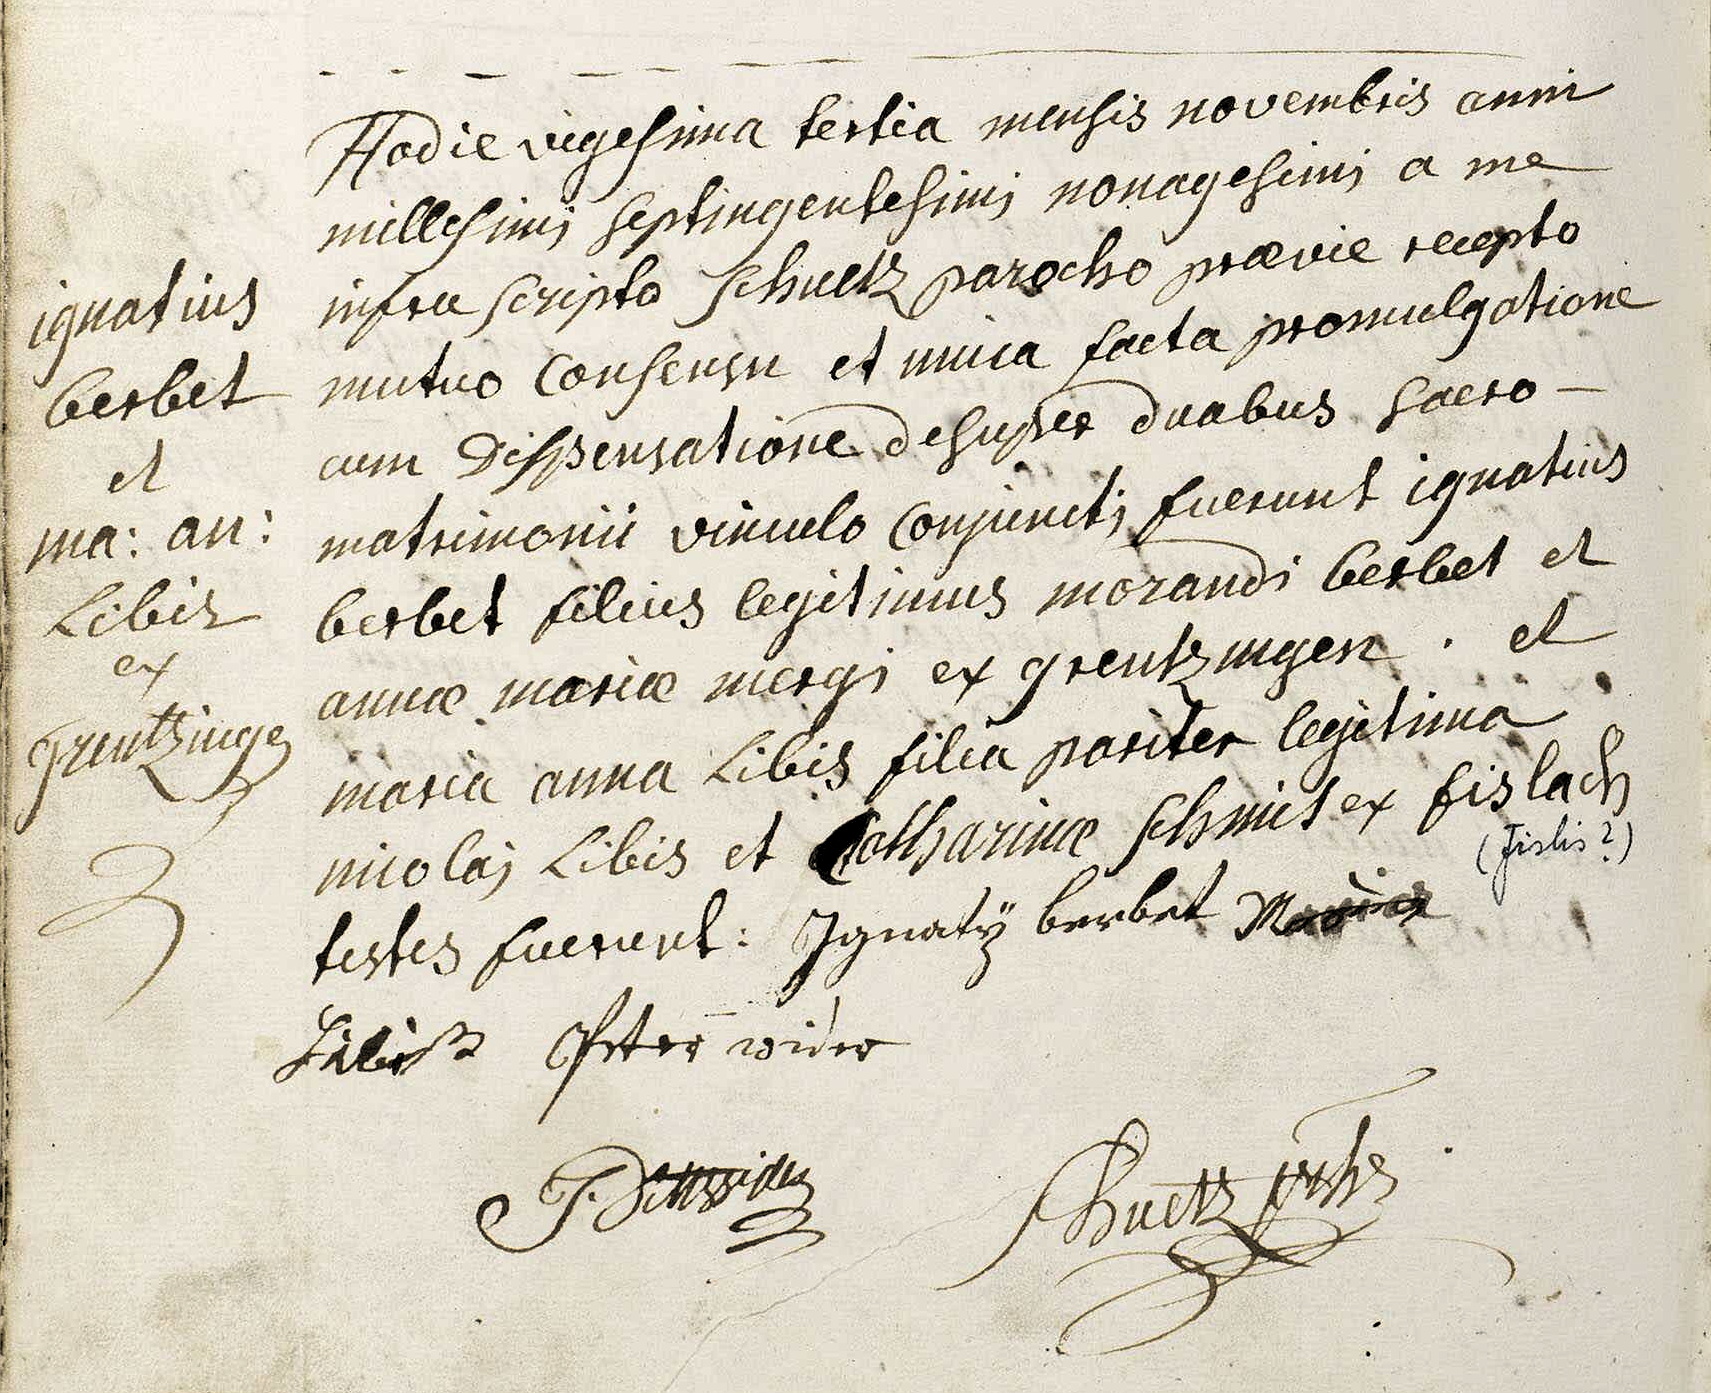 ignatius
berbet
et
ma: an:
Libis
ex
grentzingen
Hodie vigesima tertia mensis novembris anni
millesimi septingentesimi nonagesimi a me
infra scripto Schuetz parocho prævie recepto
mutuo Consensu et unica facta promulgatione
cum Dispensatione desuper duabus sacro -
matrimonii vinculo Conjuncti fuerunt ignatius
berbet filius legitimus morandi berbet et
annæ mariæ mergi ex grentzingen . et
maria anna Libis filia pariter legitima
nicolai Libis et Catharinæ Schmit ex fislach
(Fislis?)
testes fuerunt: Ignatÿ berbet
Peter wider
Schuetz